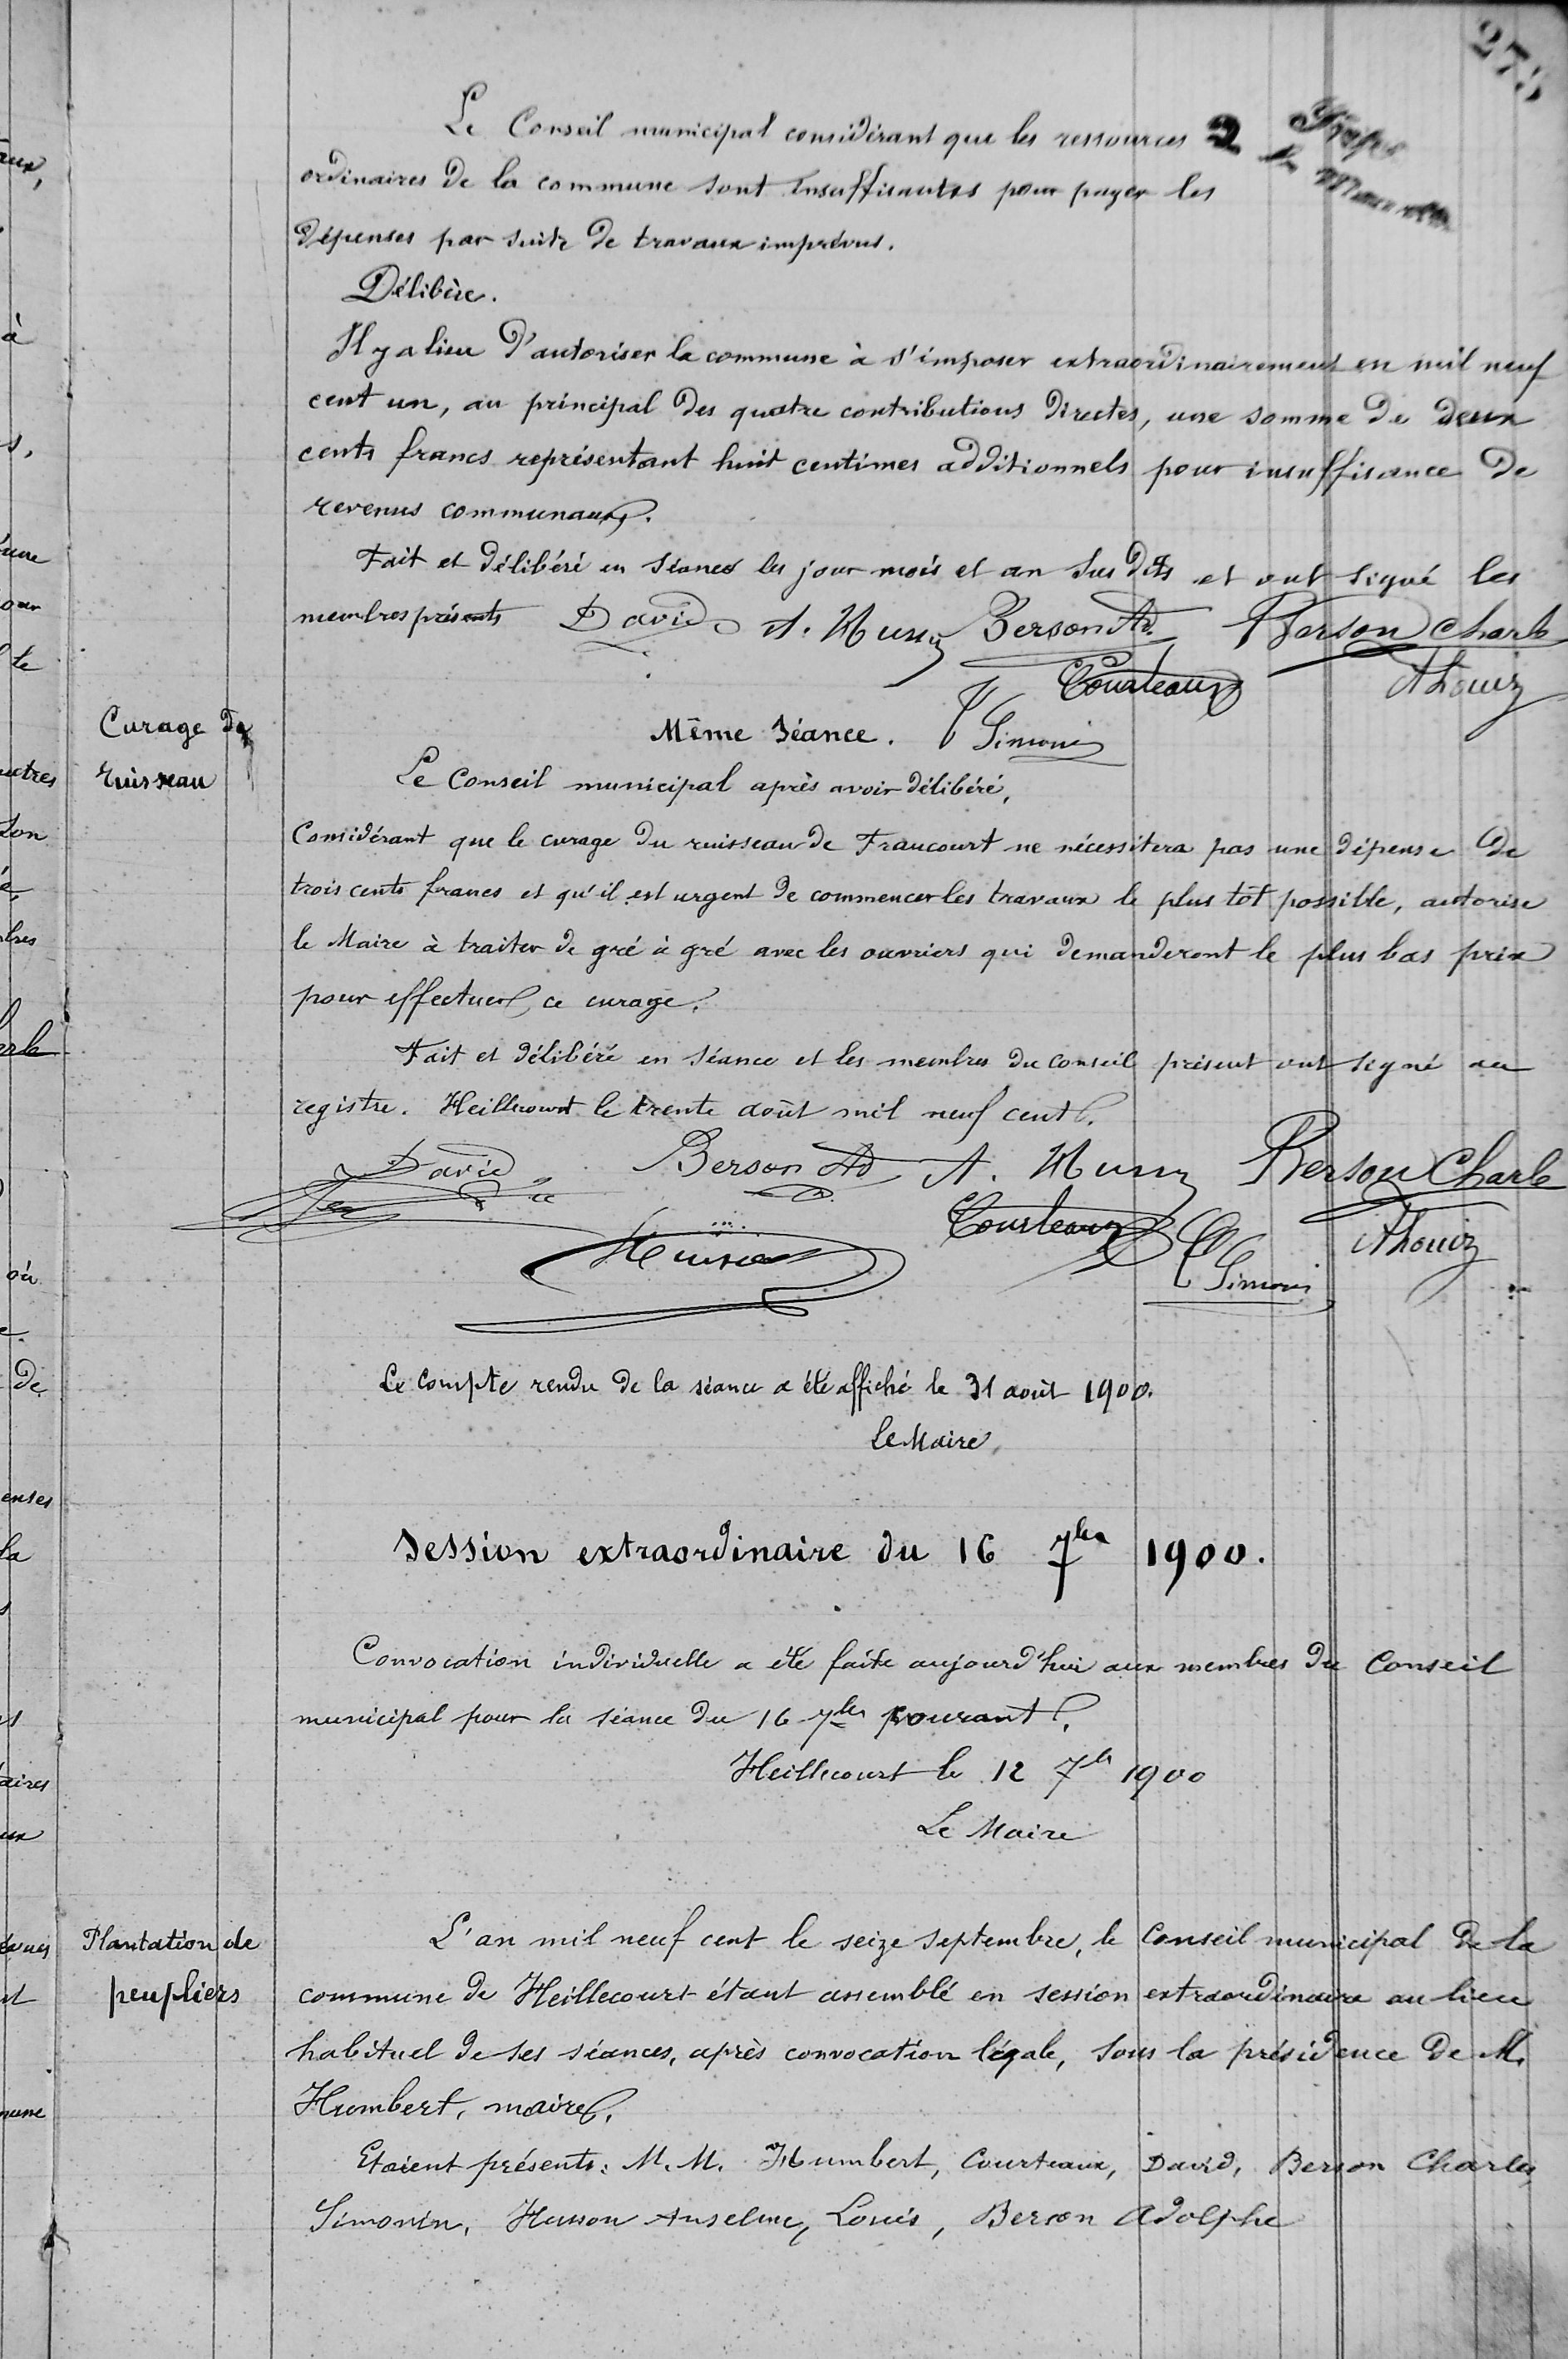 Le Conseil municipal considérant que les ressources
ordinaires de la commune sont insuffisantes pour payer les
dépenses par suite de travaux imprévus.
Délibère.
Il y a lieu d'autoriser la commune à s'imposer extraordinairement en mil neuf
cent un, au principal des quatre contributions directes, une somme de deux
cents francs représentant huit centimes additionnels pour insuffisance de
revenus communaux.
Fait et délibéré en séance les jour mois et an sus dits et ont signé les
membres présents David A. Husson Berson Ad. Berson Charle
Courteaux A Louis
Curage du
ruisseau
Même Séance. Simonin
Le Conseil municipal après avoir délibéré,
Considérant que le curage du ruisseau de Fraucourt ne nécessitera pas une dépense de
trois cents francs et qu'il est urgent de commencer les travaux le plus tôt possible, autorise
le Maire à traiter de gré à gré avec les ouvriers qui demanderont le plus bas prix
pour effectuer ce curage.
Fait et délibéré en séance et les membres du conseil présent ont signé au
registre. Heillecourt le trente août mil neuf cent.
David Berson Ad A. Husson Berson Charle
Courteaux A Louis
Simonin
Le compte rendu de la séance a été affiché le 31 août 1900.
Le Maire,
Session extraordinaire du 16 7bre 1900.
Convocation individuelle a été faite aujourd'hui aux membres du Conseil
municipal pour la séance du 16 7bre courant.
Heillecourt le 12 7b 1900
Le Maire
Plantation de
peupliers
L'an mil neuf cent le seize septembre, le Conseil municipal de la
commune de Heillecourt étant assemblé en session extraordinaire au lieu
habituel de ses séances, après convocation légale, sous la présidence de M.
Humbert, maire.
Etaient présents: M.M. Humbert, Courteaux, David, Berson Charles,
Simonin, Husson Anselme, Louis, Berson Adolphe